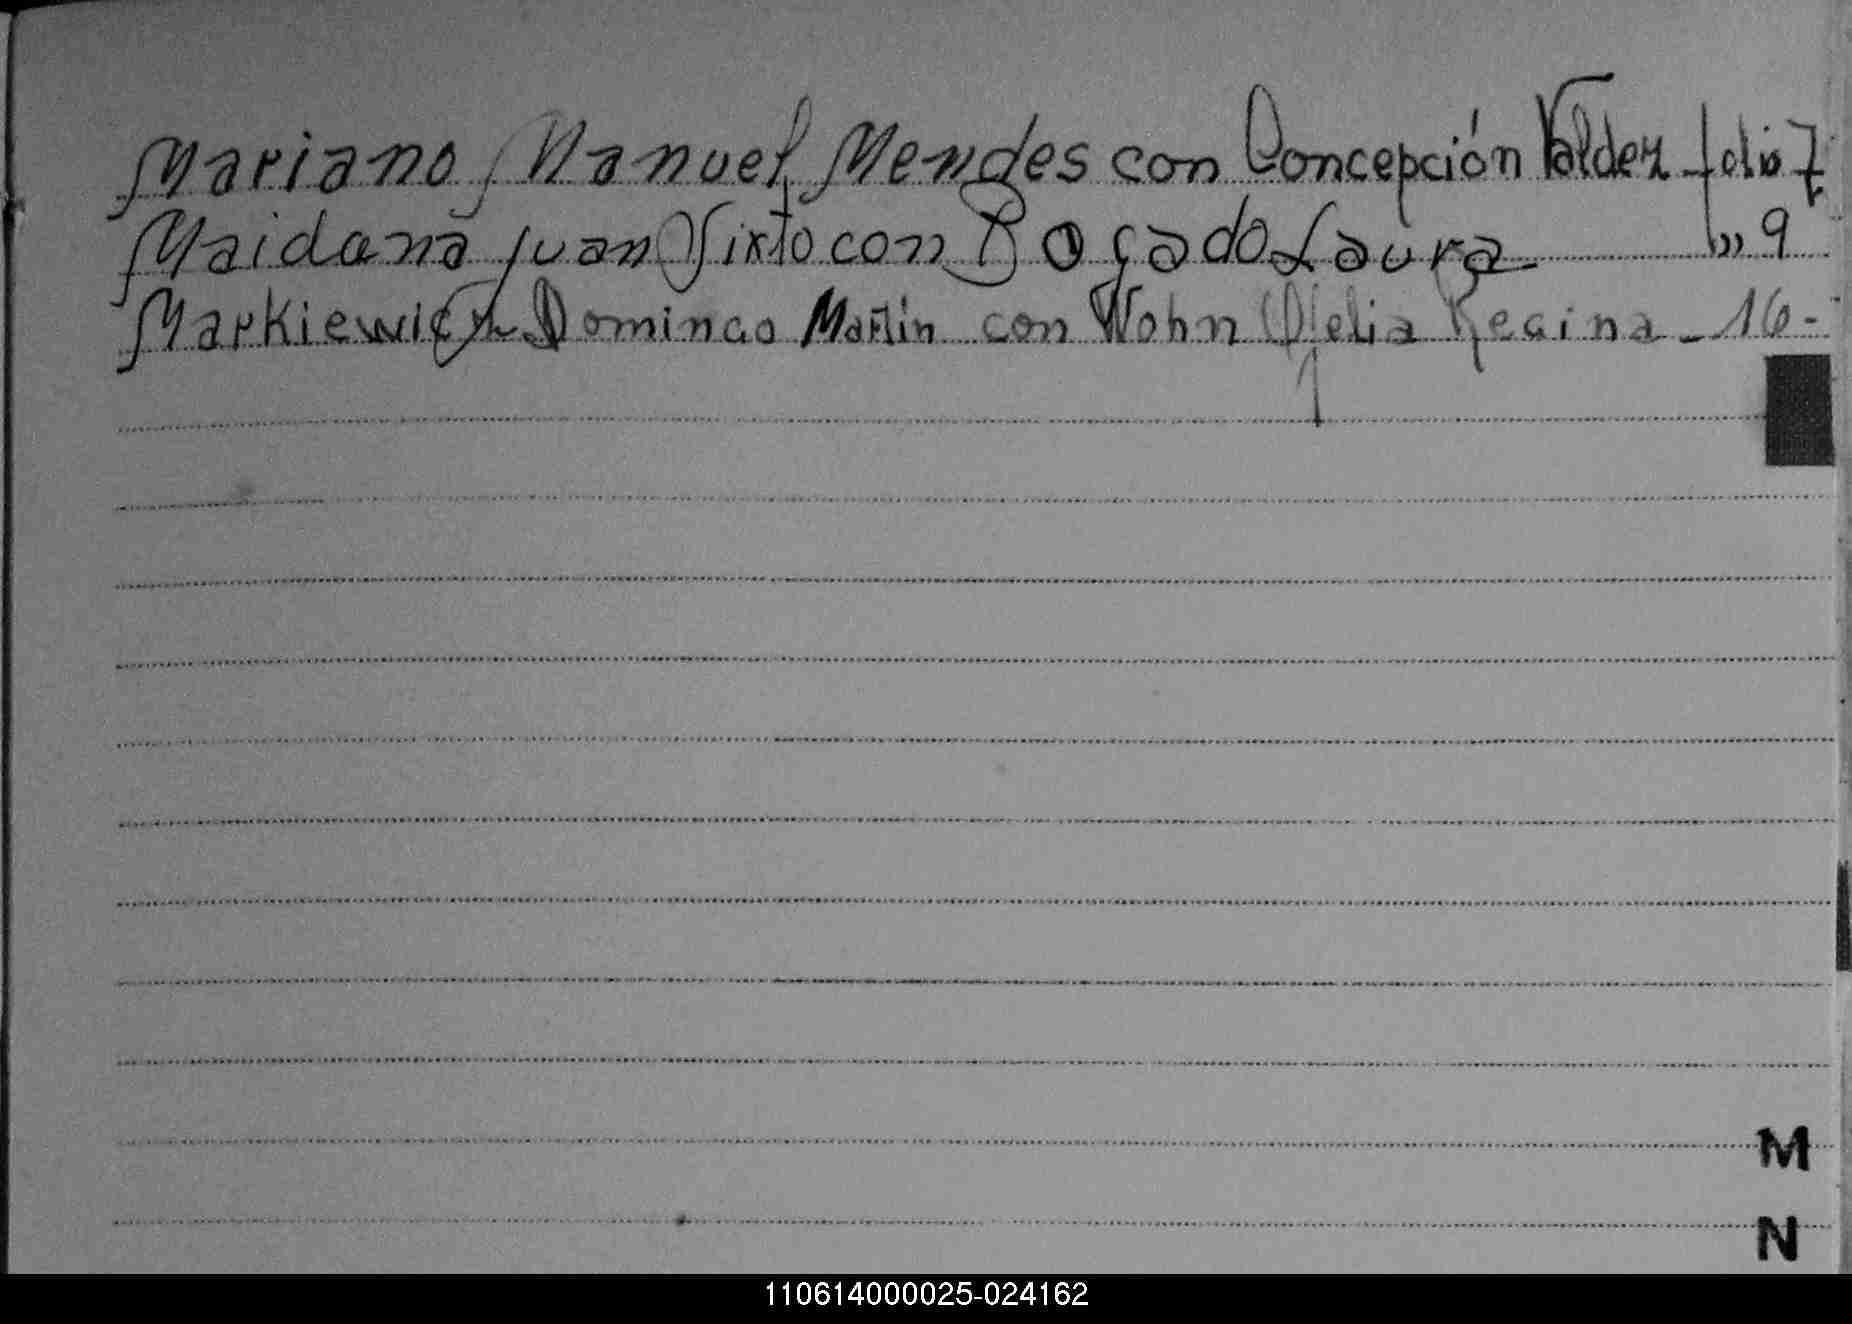 Mariano, Manuel, Mendes con Concepción Valdez folio 7
Maidana Juan Sixto con Bogado Laura „ 9
Markiewicz Domingo Martin con Wohn Delia Regina - 16 -
M
N
110614000025-024162